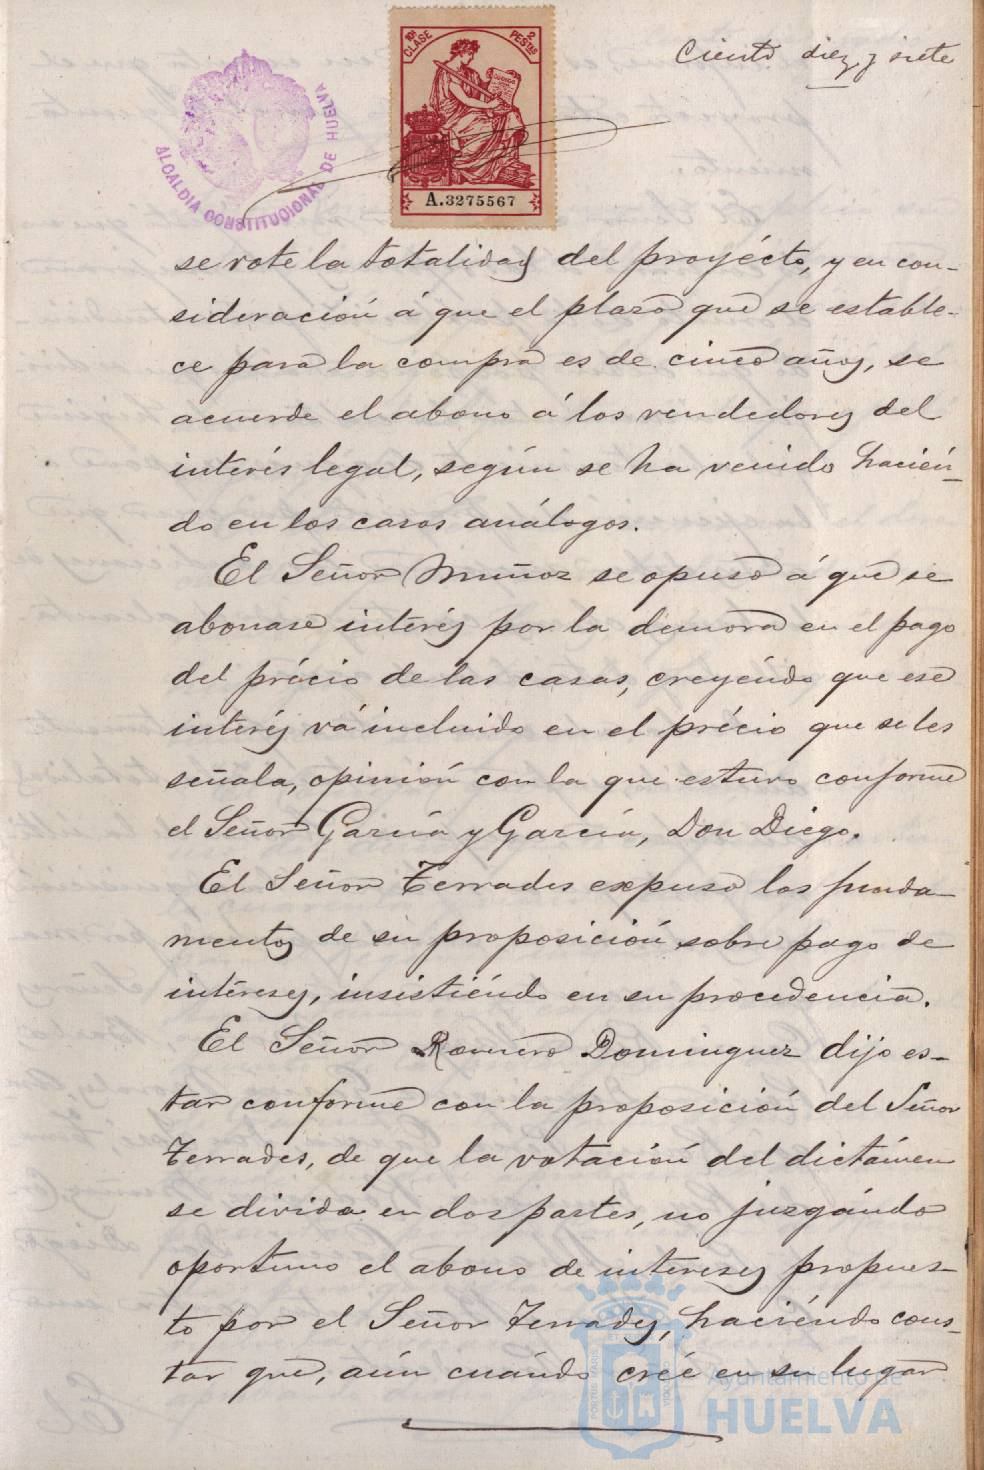 Ciento diez y siete
10ª CLASE
2 PESTAS
A.3275567
ALCALDIA CONSTITUCIONAL DE HUELVA
se vote la totalidad del proyécto, y en con-
sideración á que el plazo que se estable-
ce para la compra es de cinco años, se
acuerde el abono á los vendedores del
interés legal, según se ha venido hacién-
do en los casos análogos.
El Señor Muñoz se opuso á que se
abonase interés por la demora en el pago
del précio de las casas, creyéndo que ese
interés vá incluido en el précio que se les
señala, opinión con la que estuvo conforme
el Señor García y García, Don Diego.
El Señor Terrades expuso los funda-
mentos de su proposición sobre pago de
intereses, insistiéndo en su procedencia.
El Señor Romero Dominguez dijo es-
tar conforme con la proposición del Señor
Terrades, de que la votación del dictámen
se divida en dos partes, no juzgándo
oportuno el abono de intereses propues-
to por el Señor Terrades, haciéndo cons-
tar que, aún cuándo créé en su lugar
PORTUS MARIS
Ayuntamiento de
HUELVA